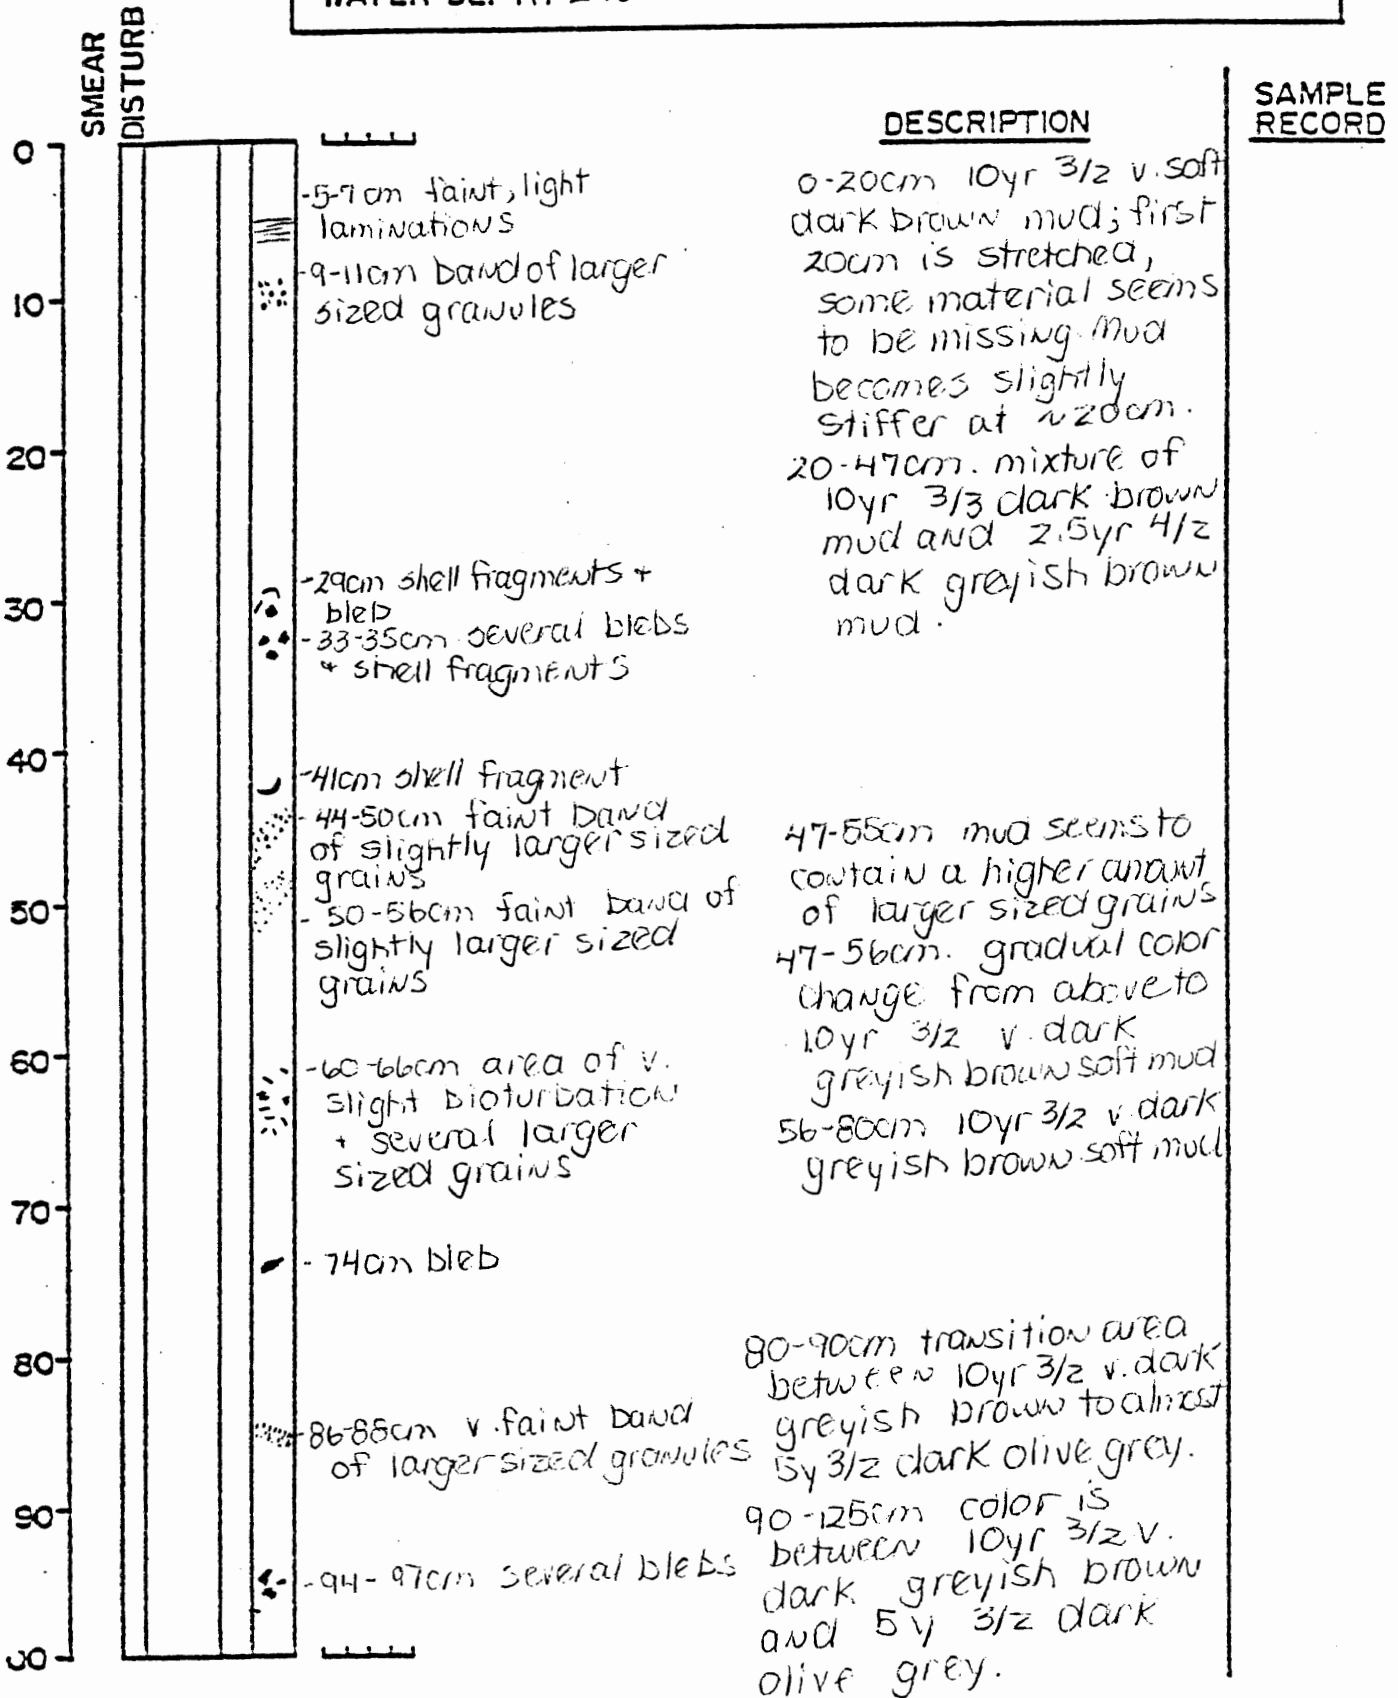 SMEAR
DISTURB
DESCRIPTION
SAMPLE
RECORD
0
10
20
30
40
50
60
70
80
90
-5-7cm faint, light
laminations
-9-11cm band of larger
sized granules
-29cm shell fragments +
bleb
-33-35cm several blebs
+ shell fragments
-41cm shell fragment
-44-50cm faint band
of slightly larger sized
grains
- 50-56cm faint band of
slightly larger sized
grains
-60-66cm area of v.
slight bioturbation
+ several larger
sized grains
- 74cm bleb
-86-88cm v. faint band
of larger sized granules
-94-97cm several blebs
0-20cm 10yr 3/2 v. soft
dark brown mud; first
20cm is stretched,
some material seems
to be missing. Mud
becomes slightly
stiffer at ~20cm.
20-47cm. mixture of
10yr 3/3 dark brown
mud and 2.5yr 4/2
dark greyish brown
mud.
47-55cm mud seems to
contain a higher amount
of larger sized grains
47-56cm. gradual color
change from above to
10yr 3/2 v. dark
greyish brown soft mud
56-80cm 10yr 3/2 v. dark
greyish brown soft mud
80-90cm transition area
between 10yr 3/2 v. dark
greyish brown to almost
5y 3/2 dark olive grey.
90-125cm color is
between 10yr 3/2 v.
dark greyish brown
and 5y 3/2 dark
olive grey.